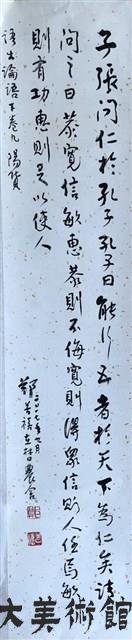 子張問仁於孔子孔子曰能行五者於天下為仁矣請
問之曰恭寬信敏惠恭則不侮寬則得眾信則人任焉敏
則有功惠則足以使人
語出論語下卷九陽貨
二〇一七年九月
鄭
大美術館